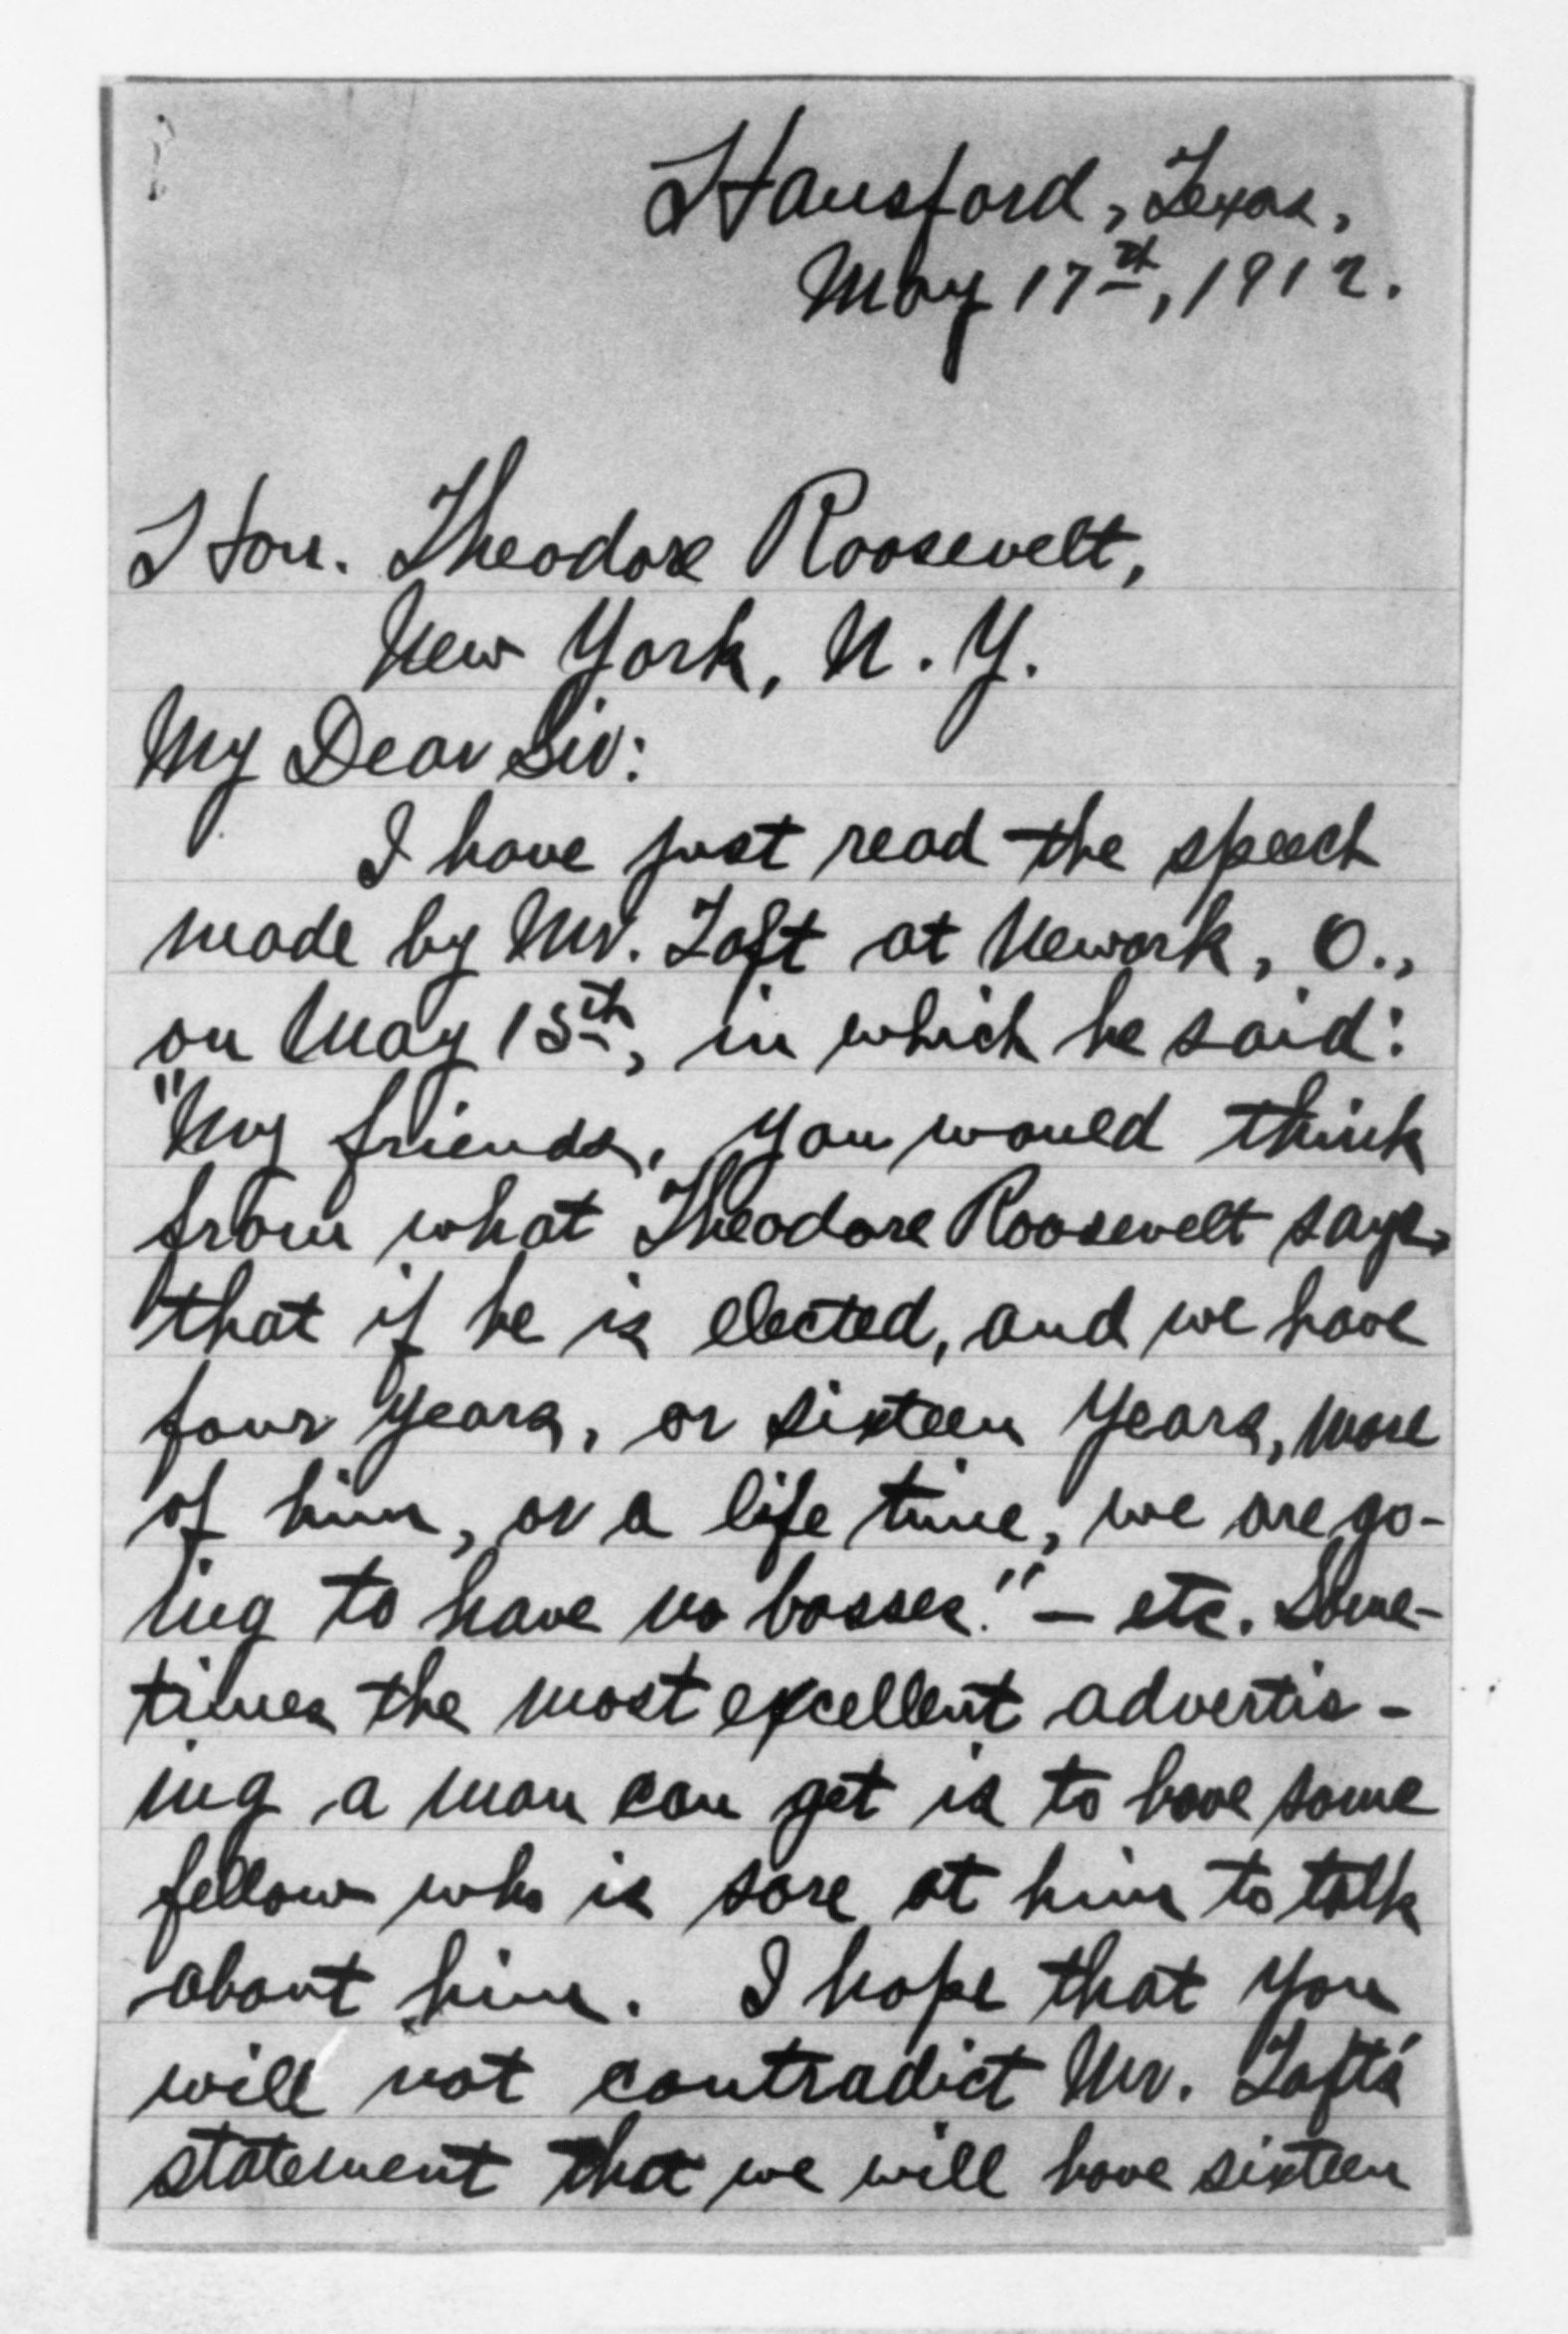 Hansford, Texas,
May 17th, 1912.
Hon. Theodore Roosevelt,
New York, N. Y.
My Dear Sir:
I have just read the speech
made by Mr. Taft at Newark, O.,
on May 15th, in which he said:
"My friends, you would think
from what Theodore Roosevelt says,
that if he is elected, and we have
four years, or sixteen years, more
of him, or a life time, we are go-
ing to have no bosses." - etc. Some-
times the most excellent advertis-
ing a man can get is to have some
fellow who is sore at him to talk
about him. I hope that you
will not contradict Mr. Taft's
statement that we will have sixteen